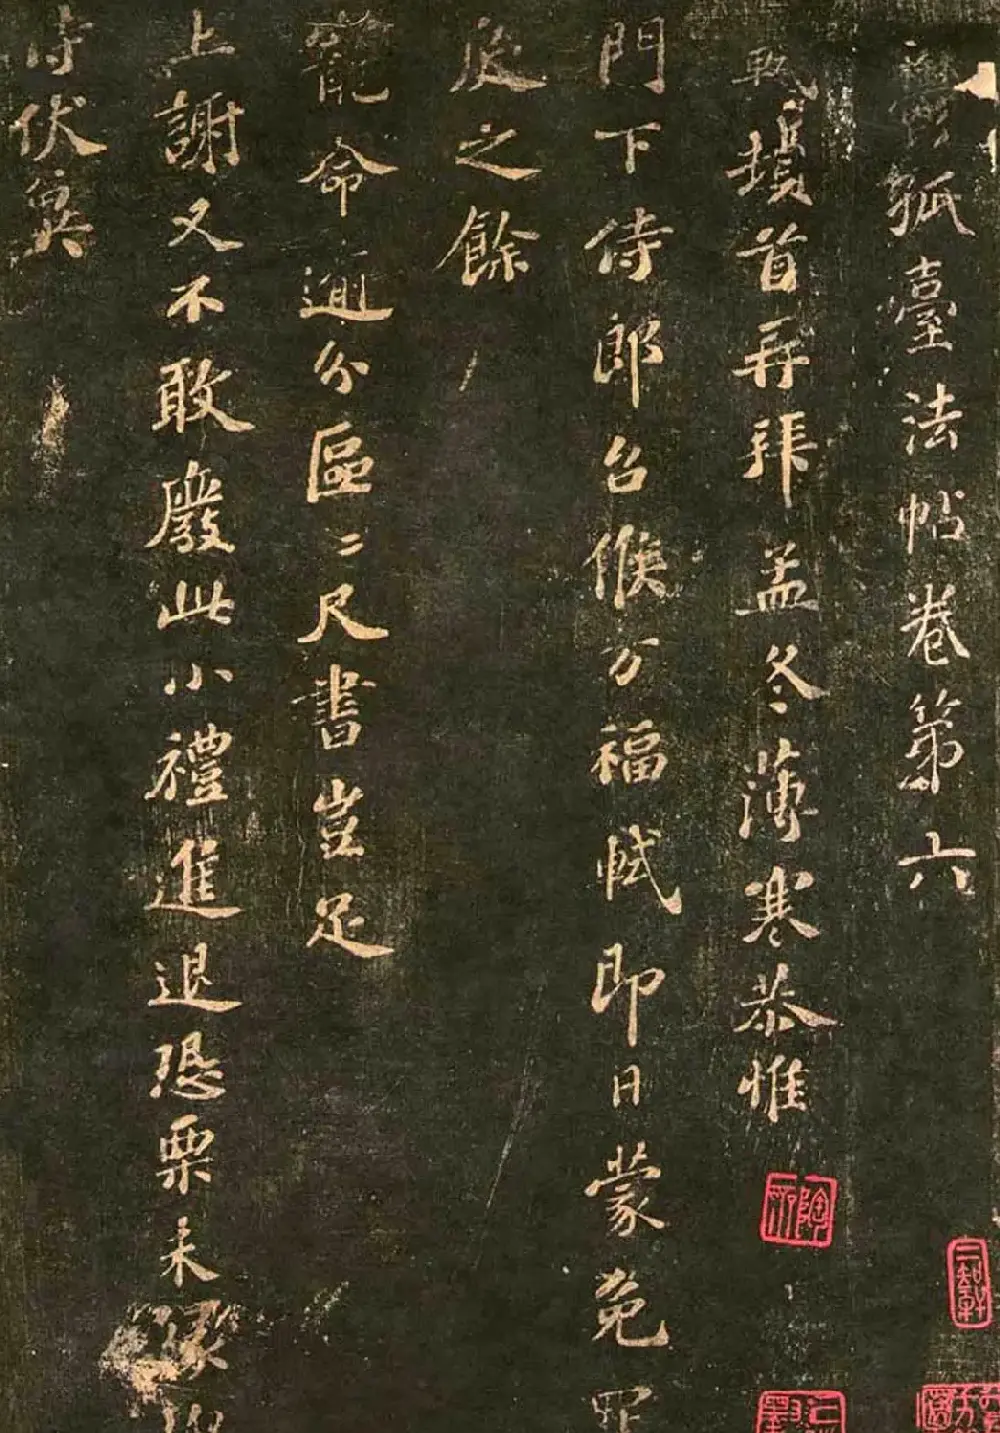 鬱孤臺法帖卷第六
軾頓首再拜孟冬薄寒恭惟
門下侍郎台候万福軾即日蒙免罪
戾之餘
寵命逾分區〻尺書豈足
上謝又不敢廢此小禮進退恐栗未緣
侍伏冀